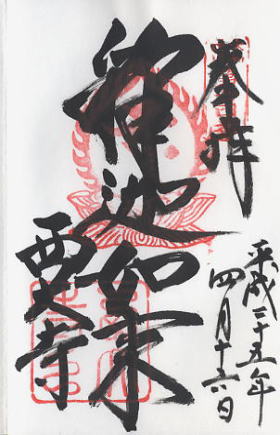 奉拝
平成二十五年
四月十六日
釋迦如来
西大寺